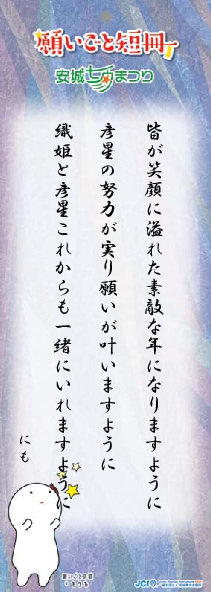 願いごと短冊
安城七夕まつり
皆が笑顔に溢れた素敵な年になりますように
彦星の努力が実り願いが叶いますように
織姫と彦星これからも一緒にいれますように
にも
JCI